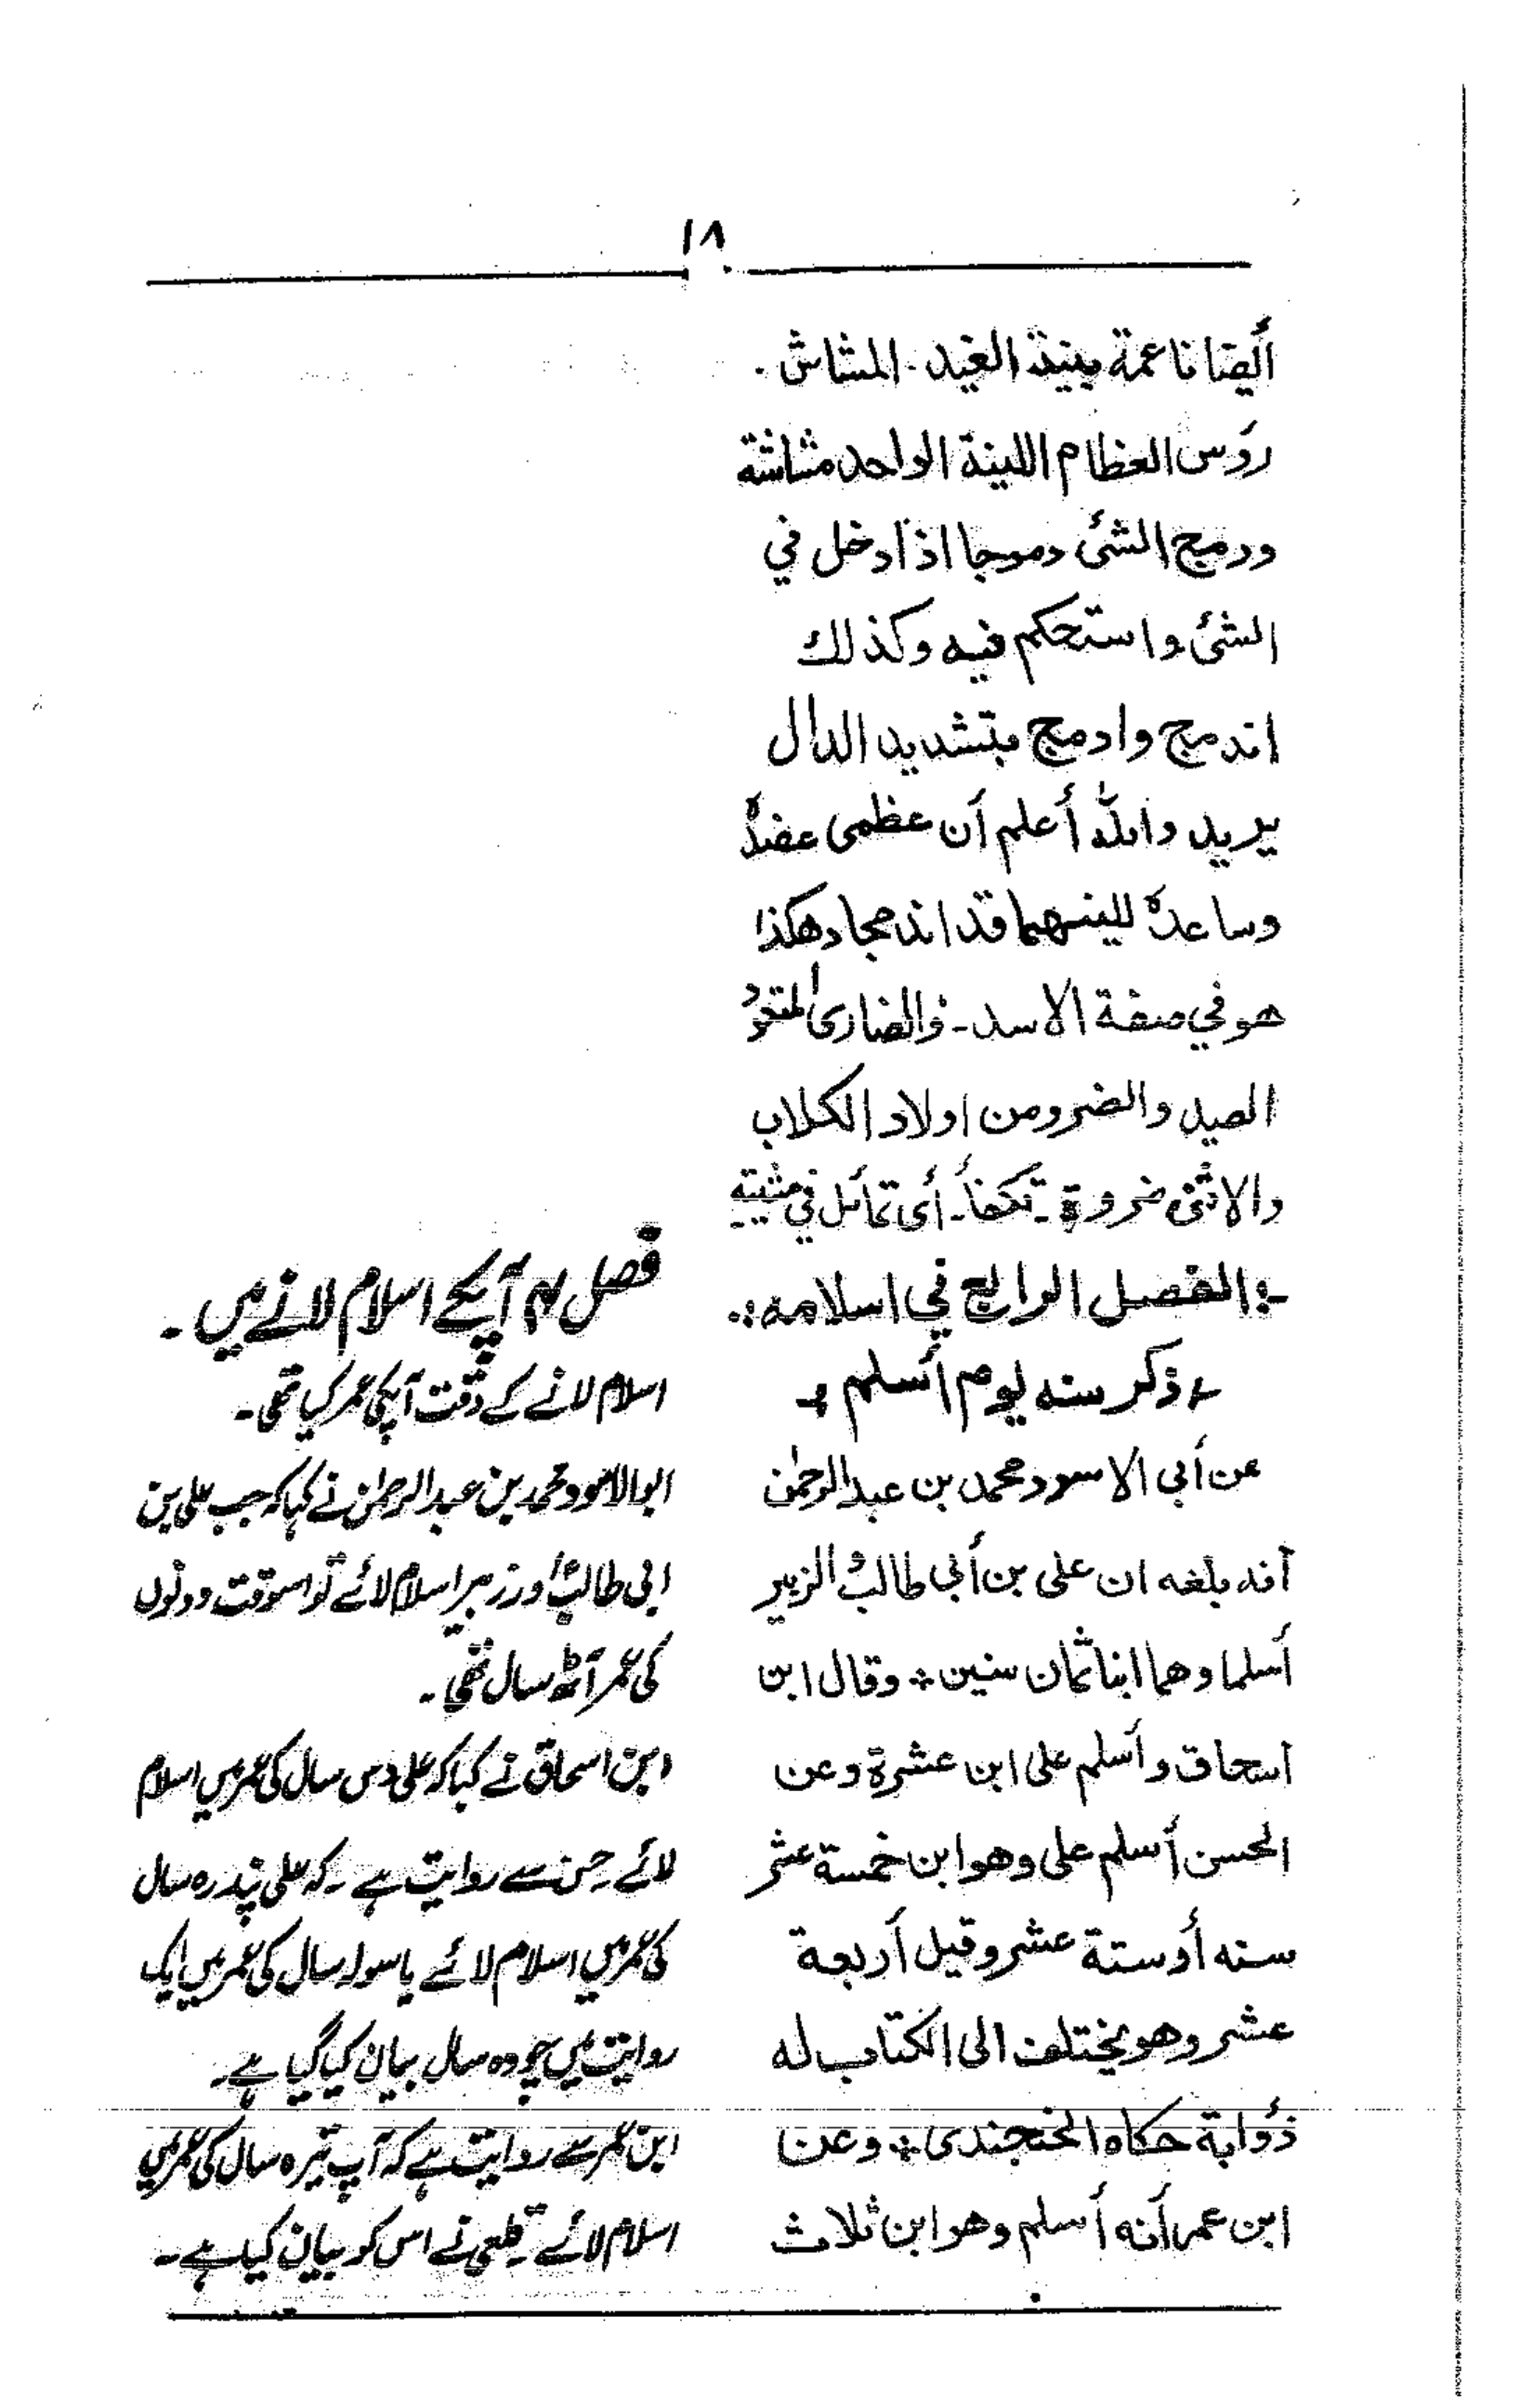 ١٨
أيضا ناعمة بينة الغيد - المشاش .
رؤس العظام اللينة الواحد مشاشة
ودمج الشئ دموجا اذا دخل في
الشئ واستحكم فيه وكذلك
اندمج وادمج بتشديد الدال
يريد والله أعلم أن عظمى عضدہ
وساعدہ للينهما قد اندمجا وهكذا
هو في صفة الاسد - والضارى المتعود
الصيد والضرو من اولاد الكلاب
والانثى ضروة - تكفأ - أى تمائل في مشيته
-: الفصل الرابع في اسلامه :-
ذكر سنه يوم أسلم
عن أبي الاسود محمد بن عبد الرحمٰن
أنه بلغه ان على بن أبي طالب و الزبير
أسلما وهما ابنا ثمان سنين ؞ وقال ابن
اسحاق وأسلم على ابن عشرة وعن
الحسن أسلم على وهو ابن خمسة عشر
سنه أو ستة عشر وقيل أربعة
عشر وهو يختلف الى الكتاب له
ذؤابة حكاه الخجندى ؞ وعن
ابن عمر أنه أسلم وهو ابن ثلاث
فصل ۴ آپکے اسلام لانے میں ۔
اسلام لانے کے وقت آپکی عمر کیا تھی ۔
ابو الاسود محمد بن عبد الرحمٰن نے کہا کہ جب علی بن
ابی طالب اور زبیر اسلام لائے تو اسوقت دونوں
کی عمر آٹھ سال تھی ۔
ابن اسحاق نے کہا کہ علی دس سال کی عمر میں اسلام
لائے حسن سے روایت ہے ۔ کہ علی پندرہ سال
کی عمر میں اسلام لائے یا سولہ سال کی عمر میں ایک
روایت میں چودہ سال بیان کیا گیا ہے ۔
ابن عمر سے روایت ہے کہ آپ تیرہ سال کی عمر میں
اسلام لائے قلعی نے اس کو بیان کیا ہے ۔